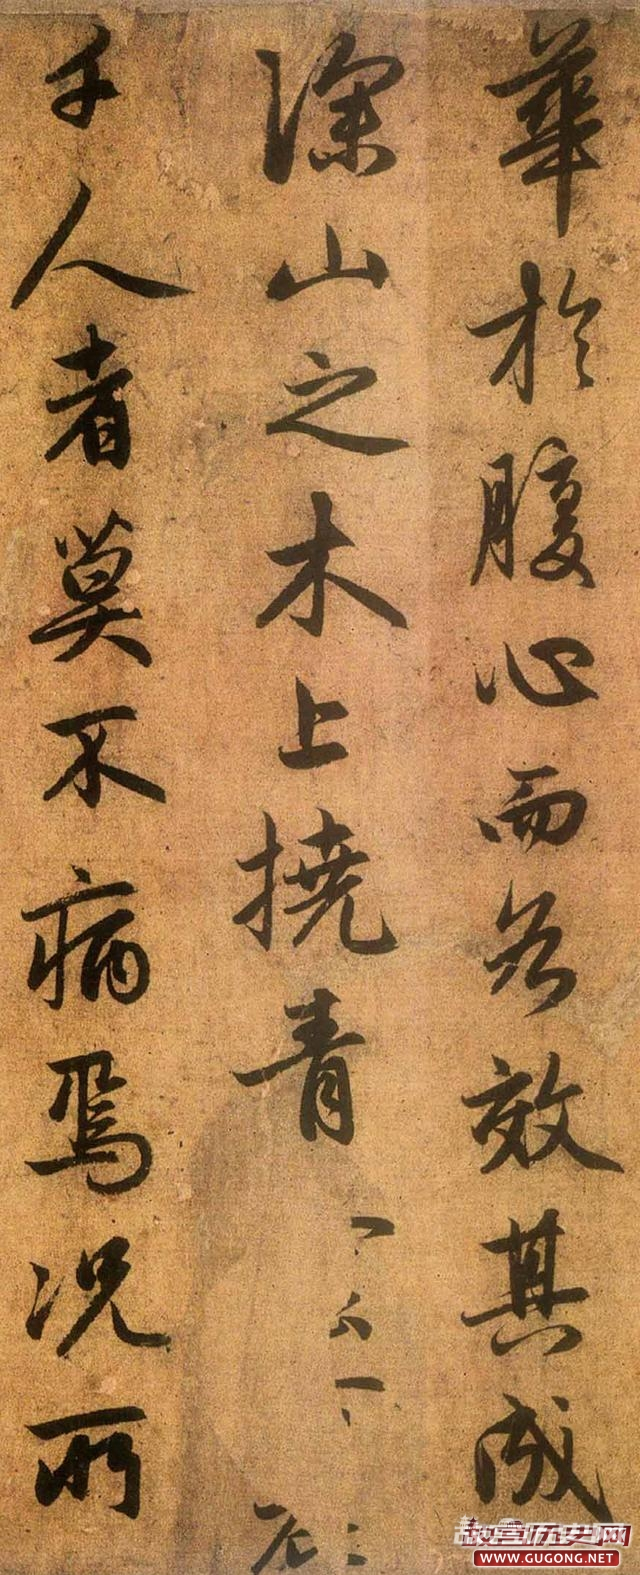 華於腹心而各效其成
深山之木上撓青
于人者莫不病焉況所
故宫历史网
WWW.GUGONG.NET